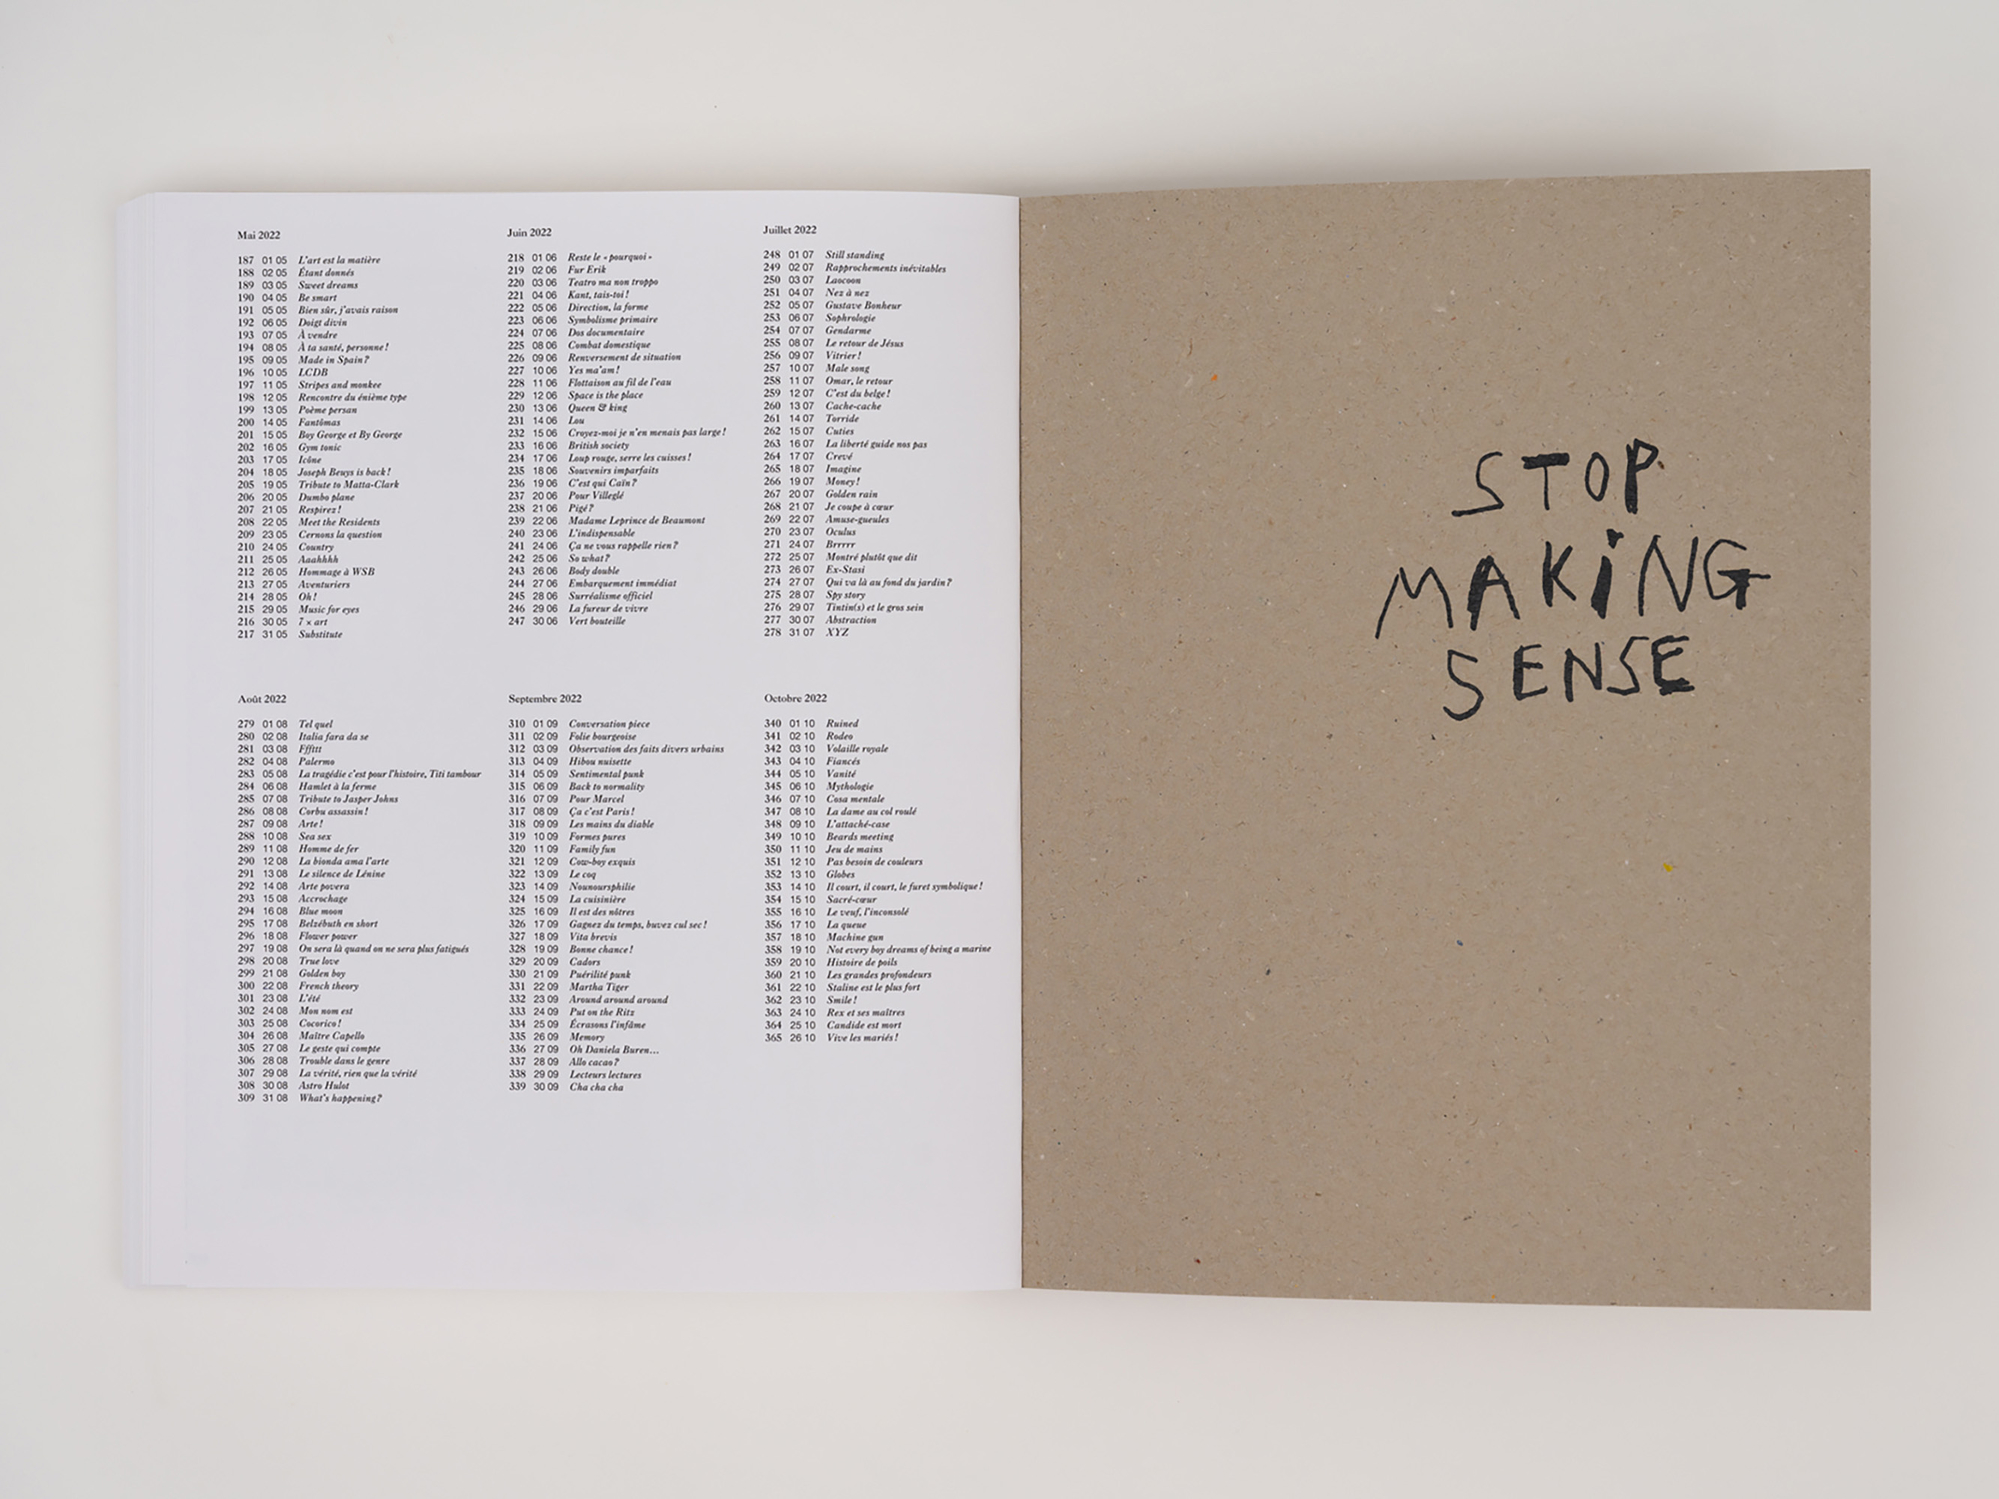 Mai 2022
187 01 05 L'art est la matière
188 02 05 Étant donnés
189 03 05 Sweet dreams
190 04 05 Be smart
191 05 05 Bien sûr, j'avais raison
192 06 05 Doigt divin
193 07 05 À vendre
194 08 05 À ta santé, personne !
195 09 05 Made in Spain ?
196 10 05 LCDB
197 11 05 Stripes and monkee
198 12 05 Rencontre du énième type
199 13 05 Poème persan
200 14 05 Fantômas
201 15 05 Boy George et By George
202 16 05 Gym tonic
203 17 05 Icône
204 18 05 Joseph Beuys is back !
205 19 05 Tribute to Matta-Clark
206 20 05 Dumbo plane
207 21 05 Respirez !
208 22 05 Meet the Residents
209 23 05 Cernons la question
210 24 05 Country
211 25 05 Aaahhhh
212 26 05 Hommage à WSB
213 27 05 Aventuriers
214 28 05 Oh !
215 29 05 Music for eyes
216 30 05 7 × art
217 31 05 Substitute
Juin 2022
218 01 06 Reste le « pourquoi »
219 02 06 Fur Erik
220 03 06 Teatro ma non troppo
221 04 06 Kant, tais-toi !
222 05 06 Direction, la forme
223 06 06 Symbolisme primaire
224 07 06 Dos documentaire
225 08 06 Combat domestique
226 09 06 Renversement de situation
227 10 06 Yes ma'am !
228 11 06 Flottaison au fil de l'eau
229 12 06 Space is the place
230 13 06 Queen & king
231 14 06 Lou
232 15 06 Croyez-moi je n'en menais pas large !
233 16 06 British society
234 17 06 Loup rouge, serre les cuisses !
235 18 06 Souvenirs imparfaits
236 19 06 C'est qui Caïn ?
237 20 06 Pour Villeglé
238 21 06 Pigé ?
239 22 06 Madame Leprince de Beaumont
240 23 06 L'indispensable
241 24 06 Ça ne vous rappelle rien ?
242 25 06 So what ?
243 26 06 Body double
244 27 06 Embarquement immédiat
245 28 06 Surréalisme officiel
246 29 06 La fureur de vivre
247 30 06 Vert bouteille
Juillet 2022
248 01 07 Still standing
249 02 07 Rapprochements inévitables
250 03 07 Laocoon
251 04 07 Nez à nez
252 05 07 Gustave Bonheur
253 06 07 Sophrologie
254 07 07 Gendarme
255 08 07 Le retour de Jésus
256 09 07 Vitrier !
257 10 07 Male song
258 11 07 Omar, le retour
259 12 07 C'est du belge !
260 13 07 Cache-cache
261 14 07 Torride
262 15 07 Cuties
263 16 07 La liberté guide nos pas
264 17 07 Crevé
265 18 07 Imagine
266 19 07 Money !
267 20 07 Golden rain
268 21 07 Je coupe à cœur
269 22 07 Amuse-gueules
270 23 07 Oculus
271 24 07 Brrrrr
272 25 07 Montré plutôt que dit
273 26 07 Ex-Stasi
274 27 07 Qui va là au fond du jardin ?
275 28 07 Spy story
276 29 07 Tintin(s) et le gros sein
277 30 07 Abstraction
278 31 07 XYZ
Août 2022
279 01 08 Tel quel
280 02 08 Italia fara da se
281 03 08 Fffttt
282 04 08 Palermo
283 05 08 La tragédie c'est pour l'histoire, Titi tambour
284 06 08 Hamlet à la ferme
285 07 08 Tribute to Jasper Johns
286 08 08 Corbu assassin !
287 09 08 Arte !
288 10 08 Sea sex
289 11 08 Homme de fer
290 12 08 La bionda ama l'arte
291 13 08 Le silence de Lénine
292 14 08 Arte povera
293 15 08 Accrochage
294 16 08 Blue moon
295 17 08 Belzébuth en short
296 18 08 Flower power
297 19 08 On sera là quand on ne sera plus fatigués
298 20 08 True love
299 21 08 Golden boy
300 22 08 French theory
301 23 08 L'été
302 24 08 Mon nom est
303 25 08 Cocorico !
304 26 08 Maître Capello
305 27 08 Le geste qui compte
306 28 08 Trouble dans le genre
307 29 08 La vérité, rien que la vérité
308 30 08 Astro Hulot
309 31 08 What's happening ?
Septembre 2022
310 01 09 Conversation piece
311 02 09 Folie bourgeoise
312 03 09 Observation des faits divers urbains
313 04 09 Hibou nuisette
314 05 09 Sentimental punk
315 06 09 Back to normality
316 07 09 Pour Marcel
317 08 09 Ça c'est Paris !
318 09 09 Les mains du diable
319 10 09 Formes pures
320 11 09 Family fun
321 12 09 Cow-boy exquis
322 13 09 Le coq
323 14 09 Nounoursphilie
324 15 09 La cuisinière
325 16 09 Il est des nôtres
326 17 09 Gagnez du temps, buvez cul sec !
327 18 09 Vita brevis
328 19 09 Bonne chance !
329 20 09 Cadors
330 21 09 Puérilité punk
331 22 09 Martha Tiger
332 23 09 Around around around
333 24 09 Put on the Ritz
334 25 09 Écrasons l'infâme
335 26 09 Memory
336 27 09 Oh Daniela Buren...
337 28 09 Allo cacao ?
338 29 09 Lecteurs lectures
339 30 09 Cha cha cha
Octobre 2022
340 01 10 Ruined
341 02 10 Rodeo
342 03 10 Volaille royale
343 04 10 Fiancés
344 05 10 Vanité
345 06 10 Mythologie
346 07 10 Cosa mentale
347 08 10 La dame au col roulé
348 09 10 L'attaché-case
349 10 10 Beards meeting
350 11 10 Jeu de mains
351 12 10 Pas besoin de couleurs
352 13 10 Globes
353 14 10 Il court, il court, le furet symbolique !
354 15 10 Sacré-cœur
355 16 10 Le veuf, l'inconsolé
356 17 10 La queue
357 18 10 Machine gun
358 19 10 Not every boy dreams of being a marine
359 20 10 Histoire de poils
360 21 10 Les grandes profondeurs
361 22 10 Staline est le plus fort
362 23 10 Smile !
363 24 10 Rex et ses maîtres
364 25 10 Candide est mort
365 26 10 Vive les mariés !
STOP
MAKING
SENSE